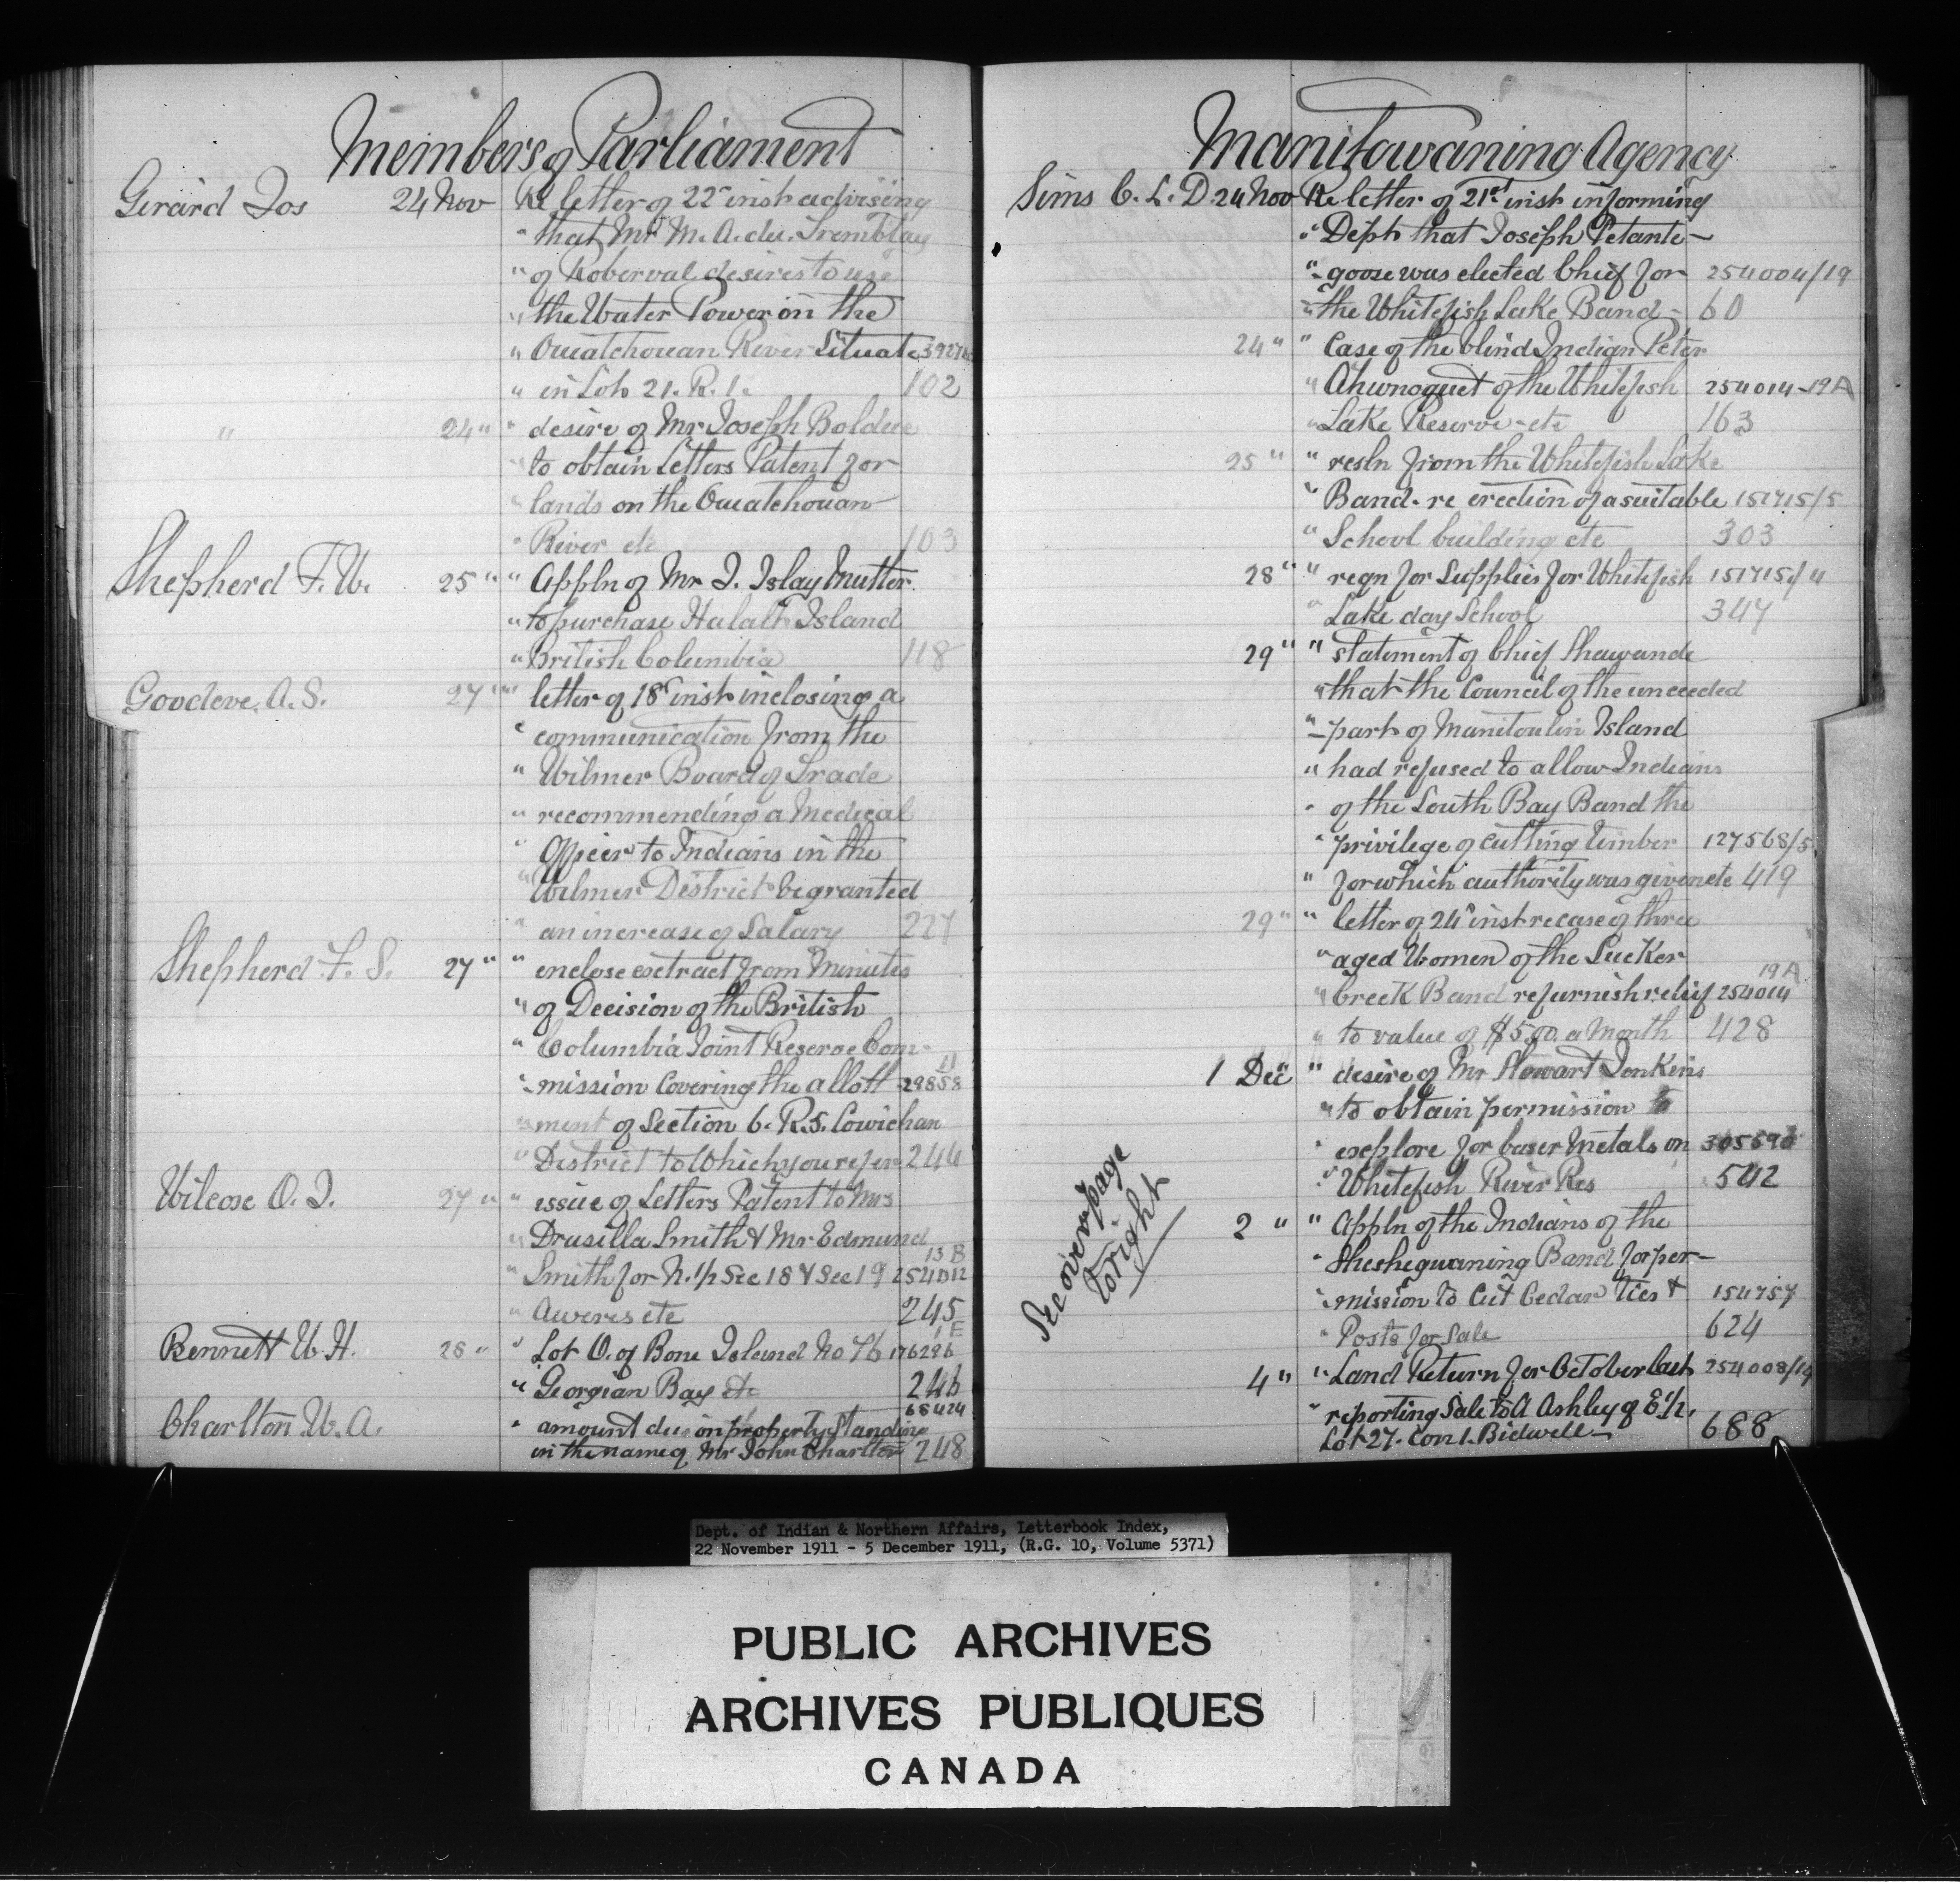 Members of Parliament
Girard Jos 24 Nov Re letter of 22" inst advising
" that Mr M. A. du. Tremblay
" of Roberval desires to use
" the Water Power on the
" Ouiatchouan River Situate
" in Lot 21. R. 1. 102
" 24 " " desire of Mr Joseph Bolduc
" to obtain Letters Patent for
" lands on the Ouiatchouan
" River etc 103
Shepherd F. W. 25 " " Appln of Mr J. Islay Mutter
" to purchase Halalt Island
" British Columbia 118
Goodeve. A. S. 27 " " letter of 18" inst inclosing a
" communication from the
" Wilmer Board of Trade
" recommending a Medical
" Officer to Indians in the
" Wilmer District be granted
" an increase of Salary 227
Shepherd F. S. 27 " " enclose extract from Minutes
" of Decision of the British
" Columbia Joint Reserve Com-
11
" mission covering the allott- 29858
" ment of Section 6. R. 5. Cowichan
" District to Which you refer 244
Wilcox O. J. 27 " " issue of Letters Patent to Mrs
" Drusilla Smith & Mr Edmund
13 B
" Smith for N. 1/2 Sec 18 & Sec 19 254012
" Aweres etc 245
1 E
Bennett W. H. 28 " " Lot O. of Bone Island No 76 176296
" Georgian Bay etc 246
68424
Charlton W. A. " amount due on property Standing
in the name of Mr John Charlton 248
Manitowaning Agency
Sims C. L. D. 24 Nov Re letter of 21st inst informing
" Dept that Joseph Petante-
" goose was elected Chief for 254004/19
" the Whitefish Lake Band - 60
24 " " Case of the blind Indian Peter
" Ahwnoquet of the Whitefish 254014-19A
" Lake Reserve - etc 163
25 " " resln from the Whitefish Lake
" Band - re erection of a suitable 151715/5
" School building etc 303
28 " " reqn for Supplies for Whitefish 151715/4
" Lake day School 347
29 " " statement of Chief Shawande
" that the Council of the unceeded
" part of Manitoulin Island
" had refused to allow Indians
" of the South Bay Band the
" privilege of cutting timber 127568/5
" for which authority was given etc 419
29 " " letter of 24" inst re case of three
" aged Women of the Sucker
19 A
" Creek Band re furnish relief 254014
" to value of $5.00. a Month 428
1 Dec " desire of Mr Stewart Jenkins
" to obtain permission to
" explore for baser Metals on 305590
" Whitefish River Res 542
2 " " Appln of the Indians of the
" Sheshegwaning Band for per-
" mission to Cut Cedar ties & 154757
" Posts for Sale 624
4 " " Land Return for October last 254008/19
" reporting Sale to A Ashley of E 1/2,
Lot 27. Con 1. Bidwell 688
See over page
to right
Dept. of Indian & Northern Affairs, Letterbook Index,
22 November 1911 - 5 December 1911, (R.G. 10, Volume 5371)
PUBLIC ARCHIVES
ARCHIVES PUBLIQUES
CANADA